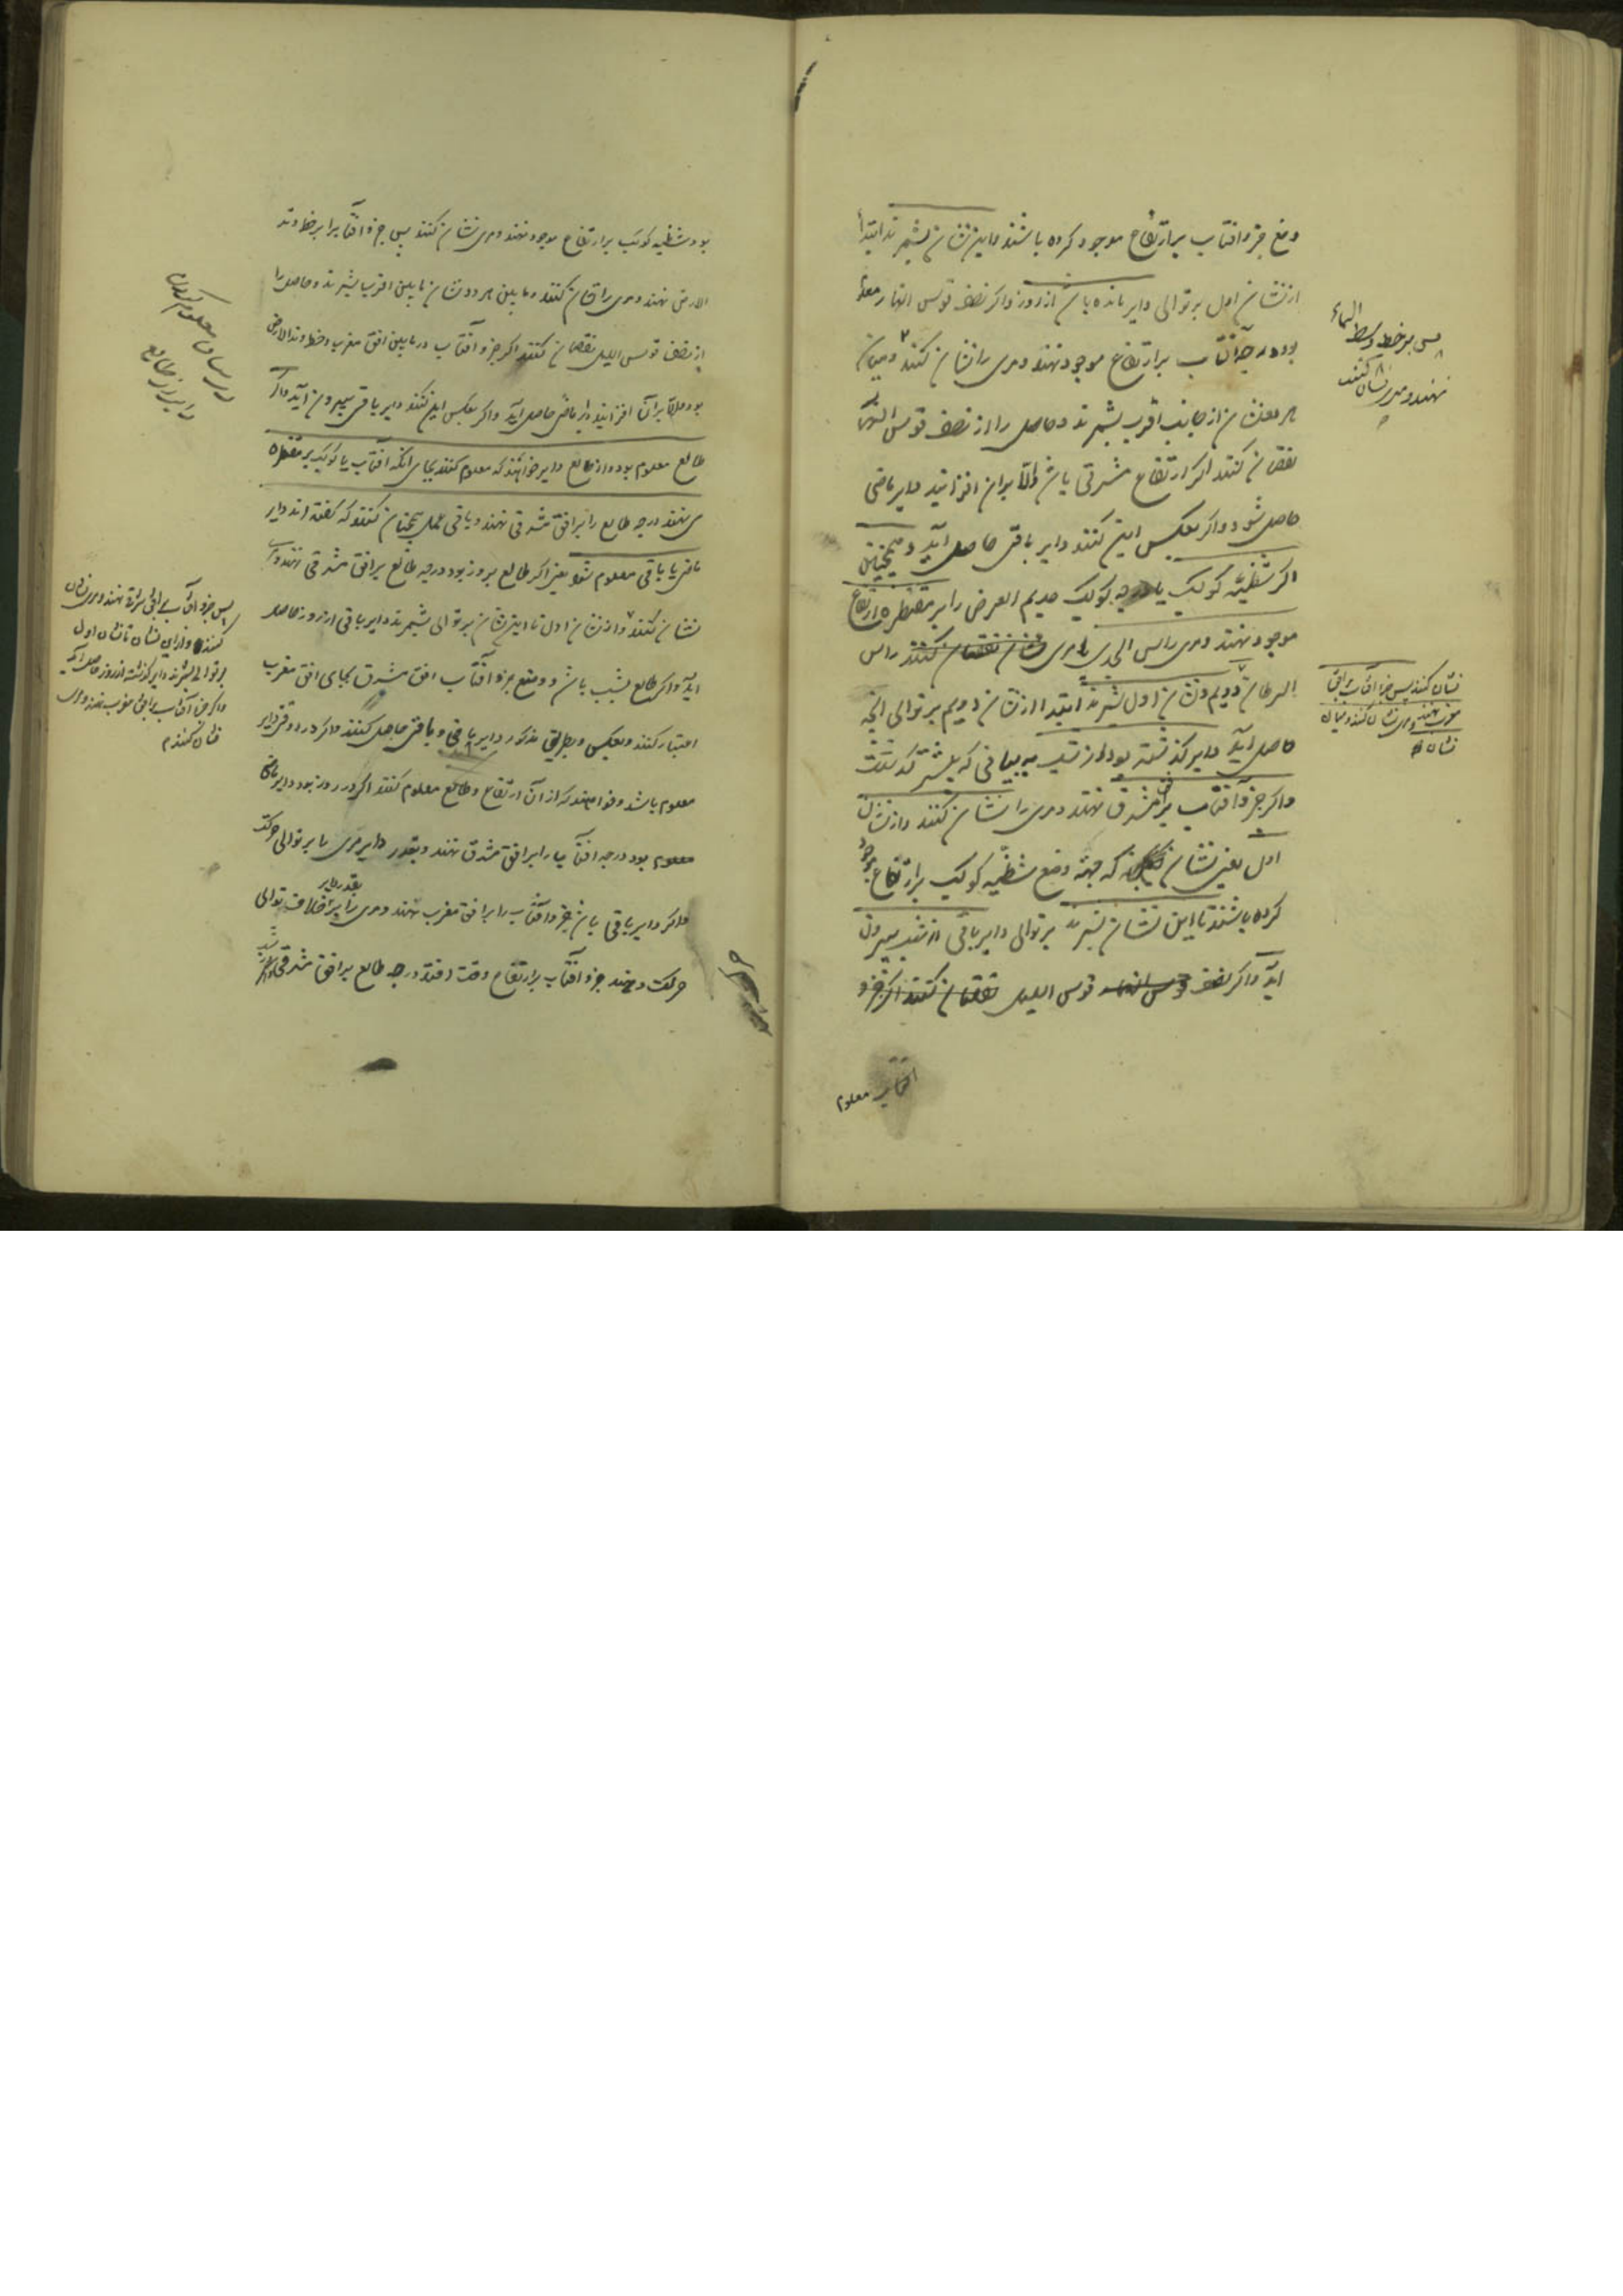 وضع جزو افتاب بر ارتفاع موجود کرده باشند و این نشان بشمرند ابتدا
از نشان اول بر توالی دایر مانده باشد از روز و اگر نصف قوس النهار معلوم
بود درجه آفتاب بر ارتفاع موجود نهند و مری را نشان کنند و میان
هر دو نشان از جانب اقرب بشمرند و حاصل را از نصف قوس النهار
نقصان کنند اگر ارتفاع شرقی باشد والا بران افزایند دایر ماضی
حاصل شود و اگر بعکس این کنند دایر باقی حاصل آید و همچنین
اگر شظیه کوکب یا درجه کوکب عدیم العرض را بر مقنطره ارتفاع
موجود نهند و مری راس الجدی نشان نقصان کنند راس
السرطان دویم و نشان اول بشمرند ابتدا از نشان دویم بر توالی انچه
حاصل آید دایر گذشته بود از شب به بیانی که پیشتر گذشت
و اگر جزو آفتاب بر افق مشرق نهند و مری را نشان کنند و از نشان
اول یعنی نشان که جهة وضع شظیه کوکب بر ارتفاع موجود
کرده باشند تا این نشان بشمرند بر توالی دایر باقی از شب بیرون
اید و اگر نصف قوس النهار قوس اللیل نقصان کنند اگر جزو
افتاب معلوم
پس بر خط وسط السماء
نهند و مری نشان کنند
نشان کنند پس جزو آفتاب بر افق
مغرب نهند و مری نشان کنند و میان
نشان
بود شظیه کوکب بر ارتفاع موجود نهند و مری نشان کنند پس جزو افتاب را بر خط وتد
الارض نهند و مری را نشان کنند و مابین هر دو نشان مابین اقرب بشمرند و حاصل را
از نصف قوس اللیل نقصان کنند اگر جزو آفتاب در مابین افق مغرب و خط وتد الارض
بود والا بر آن افزایند دایر ماضی حاصل آید و اگر بعکس این کنند دایر باقی بیرون آید و اگر
طالع معلوم بود و از طالع دایر خواهند که معلوم کنند بجای انکه افتاب یا کوکب بر مقنطره
می نهند درجه طالع را بر افق شرقی نهند و باقی عمل همچنان کنند که گفته اند دایر
ماضی یا باقی معلوم شود یعنی اگر طالع بروز بود درجه طالع بر افق شرقی نهند و
نشان کنند و از نشان اول تا این نشان بر توالی بشمرند دایر باقی از روز حاصل
اید و اگر طالع بشب باشد و وضع جزو آفتاب افق مشرق بجای افق مغرب
اعتبار کنند و بعکس و بطریق مذکور دایر باقی و ماضی حاصل کنند و اگر در وقتی دایر
معلوم باشد و خواهند که از آن ارتفاع و طالع معلوم کنند اگر در روز بود و دایر ماضی
معلوم بود درجه افتاب را بر افق مشرق نهند و بقدر دایر مری را بر توالی حرکت
و اگر دایر باقی باشد جزو آفتاب را بر افق مغرب نهند و مری را بقدر دایر بر خلاف توالی
حرکت دهند جزو آفتاب بر ارتفاع وقت افتد و درجه طالع بر افق شرقی
در بیان معلوم کردن
دایر از طالع
پس جزو آفتاب بر افق مشرق نهند و مری نشان
کنند و از این نشان تا نشان اول
بر توالی بشمرند دایر گذشته از روز حاصل آید
و اگر جزو آفتاب بر افق مغرب نهند و مری
نشان کنند